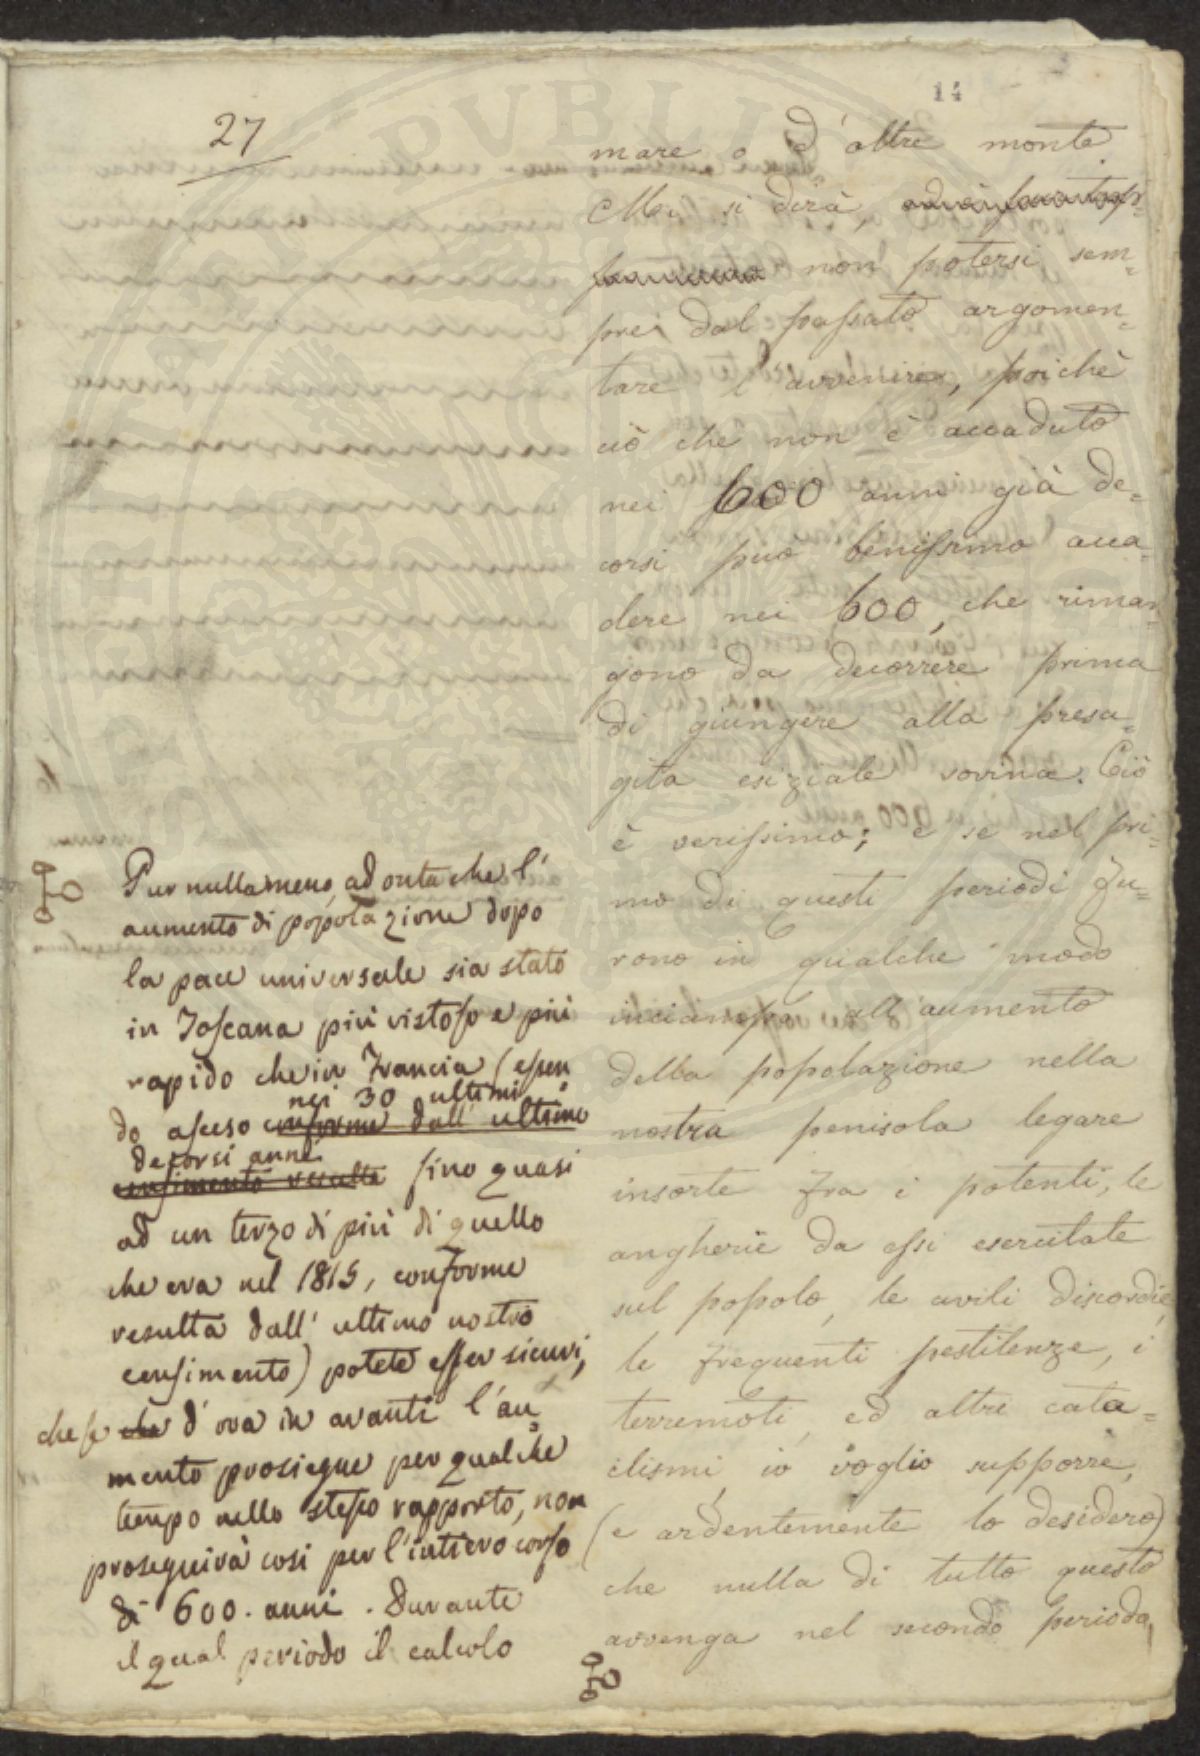 14
27
mare o d'altre monte
Ma, si dirà,
non potersi sem-
pre dal passato argomen-
tare l'avvenire, poichè
ciò che non è accaduto
nei 600 anni già de-
corsi può benissimo acca-
dere nei 600, che riman-
gono da decorrere prima
di giungere alla presa-
gita esiziale rovina. Ciò
è verissimo; e se nel pri-
mo di questi periodi fu-
rono in qualche modo
inciampo all'aumento
della popolazione nella
nostra penisola le gare
insorte fra i potenti, le
angherie da essi esercitate
sul popolo, le civili discordie,
le frequenti pestilenze, i
terremoti, ed altri cata-
clismi, io voglio supporre,
(e ardentemente lo desidero)
che nulla di tutto questo
avvenga nel secondo periodo,
Pur nulla meno, ad onta che l'
aumento di popolazione dopo
la pace universale sia stato
in Toscana più vistoso e più
rapido che in Francia (essen
nei 30 ultimi
do asceso conforme dall'ultimo
decorsi anni
censimento resulta fino quasi
ad un terzo di più di quello
che era nel 1815, conforme
resulta dall'ultimo nostro
censimento) potete esser sicuri,
che se che d'ora in avanti l'au-
mento prosiegue per qualche
tempo nello stesso rapporto, non
proseguirà così per l'intiero corso
di 600. anni. Durante
il qual periodo il calcolo